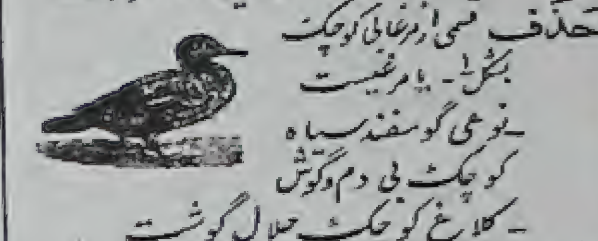 حذف قسمی از مرغابی کوچک
بشکل ۱- یا مرغیست
- نوعی گوسفند سیاه
کوچک بی دم و گوش
- کلاغ کوچک حلال گوشت